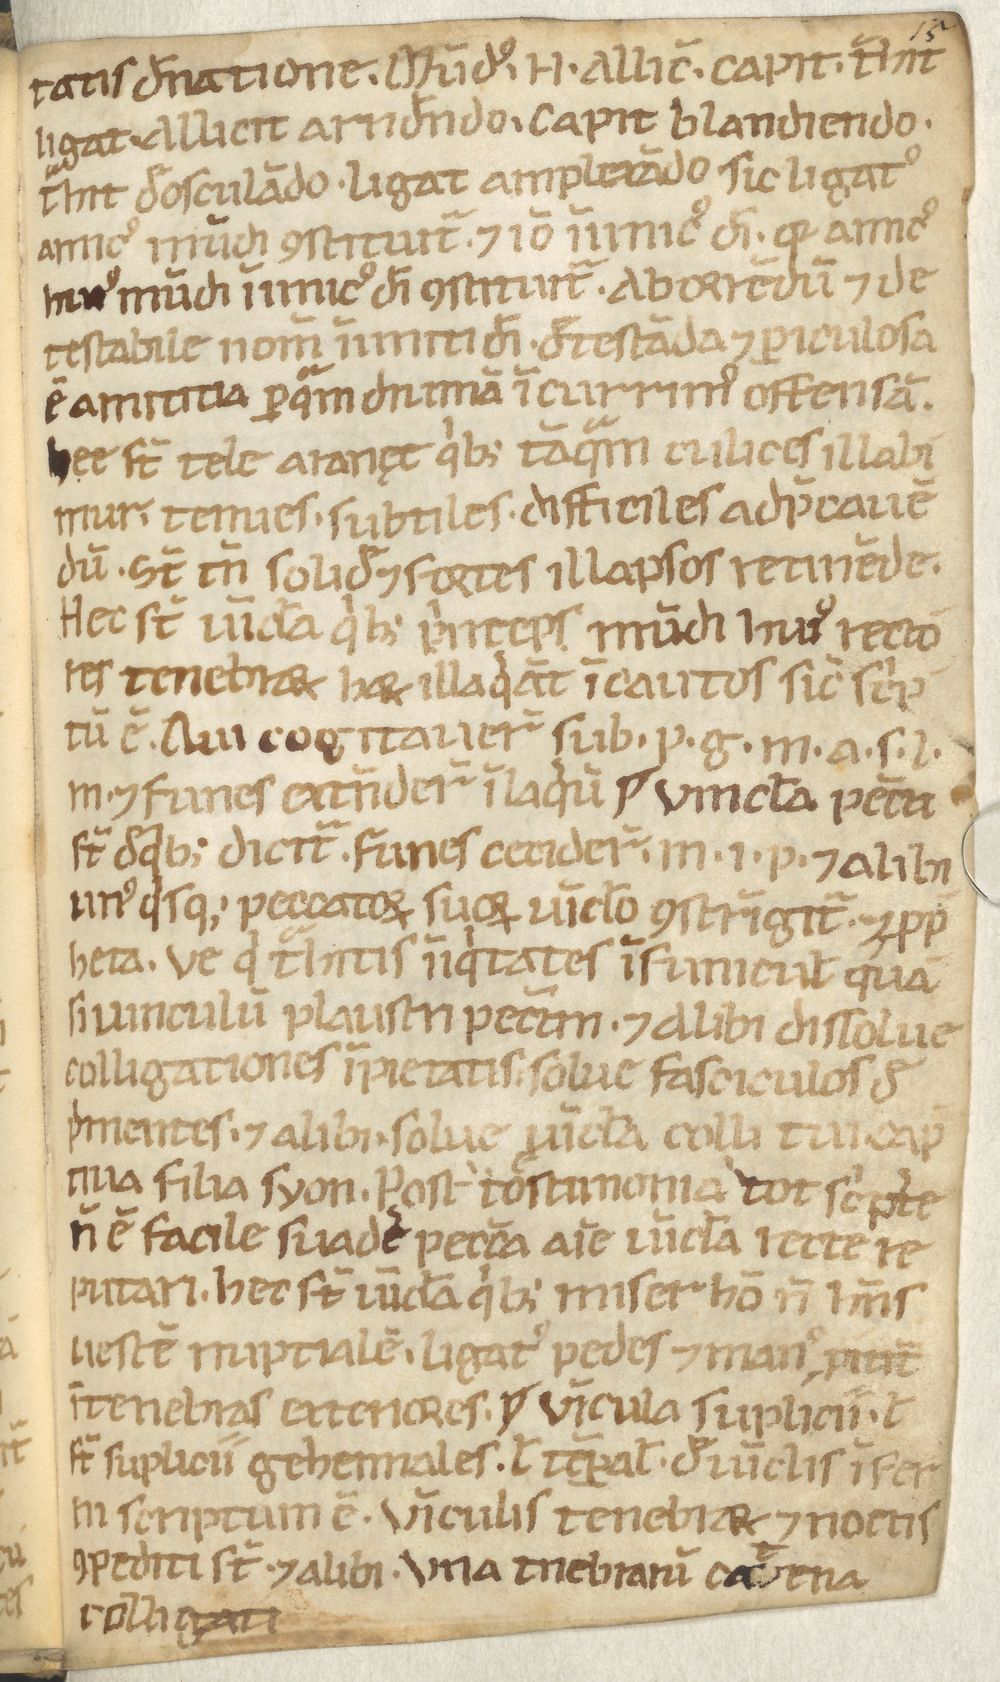 15
tatis dn̄atione. Mūdꝰ. H. Allic̄. capit. t̄hit
ligat. Allicit arridn̄do. Capit blandiendo.
t̄hit d̄osculādo. ligat amplexādo sic ligatꝰ
amicꝰ mūdi ꝯstituit᷑. ⁊ iō inimicꝰ di̅. qr amicꝰ
huiꝰ mūdi inimicꝰ di̅ ꝯstituit᷑. Aborrēdū ⁊ de
testabile nom̄ inimici di̅. d̄testāda ⁊ ꝑiculosa
ē amicitia ꝑ qᵃm diuinā īcurrimꝰ offensā.
hee st̄ tele aranęe qⁱbꝫ tāqᵃm culices illabi
mur. tenues. subtiles. difficiles ad p̄cauē
dū. St̄ tn̄ solid̄ ⁊ fortes illapsos retinēde.
Hec st̄ uīcla qⁱbꝫ pⁱnceps mūdi huiꝰ recto
res tenebraꝝ haꝝ illaqⁱāt īcautos sic̄ sc̄p
tū ē. Qui cogitauer̄ sub. p. g. m. a. s. l.
m. ⁊ funes extn̄der̄ ī laqⁱū ꝑ Vincła pec̄ti
st̄ d̄ qⁱbꝫ dicit᷑. funes cecider̄. m. i. p. ⁊ alibi
unꝰqⁱsqꝫ peccatoꝝ suoꝝ uīclo ꝯstrīgit᷑. ⁊ ꝓp
heta. Ve qⁱ tᵃhitis iniqⁱtates ī funicuł qua
si uinculū plaustri pec̄tm. ⁊ Alibi dissolue
colligationes īpietatis. solue fasciculos d̄
pⁱmentes. ⁊ alibi. solue uīcła colli tui. cap
tiua filia syon. Post testimonia tot scⁱpt̄e
n̄ ē facile suader̄ pecc̄a aīe uīcła recte re
putari. hec st̄ uīcła qⁱbꝫ miser hō n̄ hn̄s
uestē nuptialē. ligatꝰ pedes ⁊ manꝰ
ī tenebras exteriores. ꝑ Vīcula suplicii. ł
st̄ suplicii gehennales. ł tēꝑał. d̄ uīclis īfer
ni scriptum ē. Vīculis tenebraꝝ ⁊ noctis
ꝯpediti st̄. ⁊ alibi. Vna tnebrarū catena
colligati